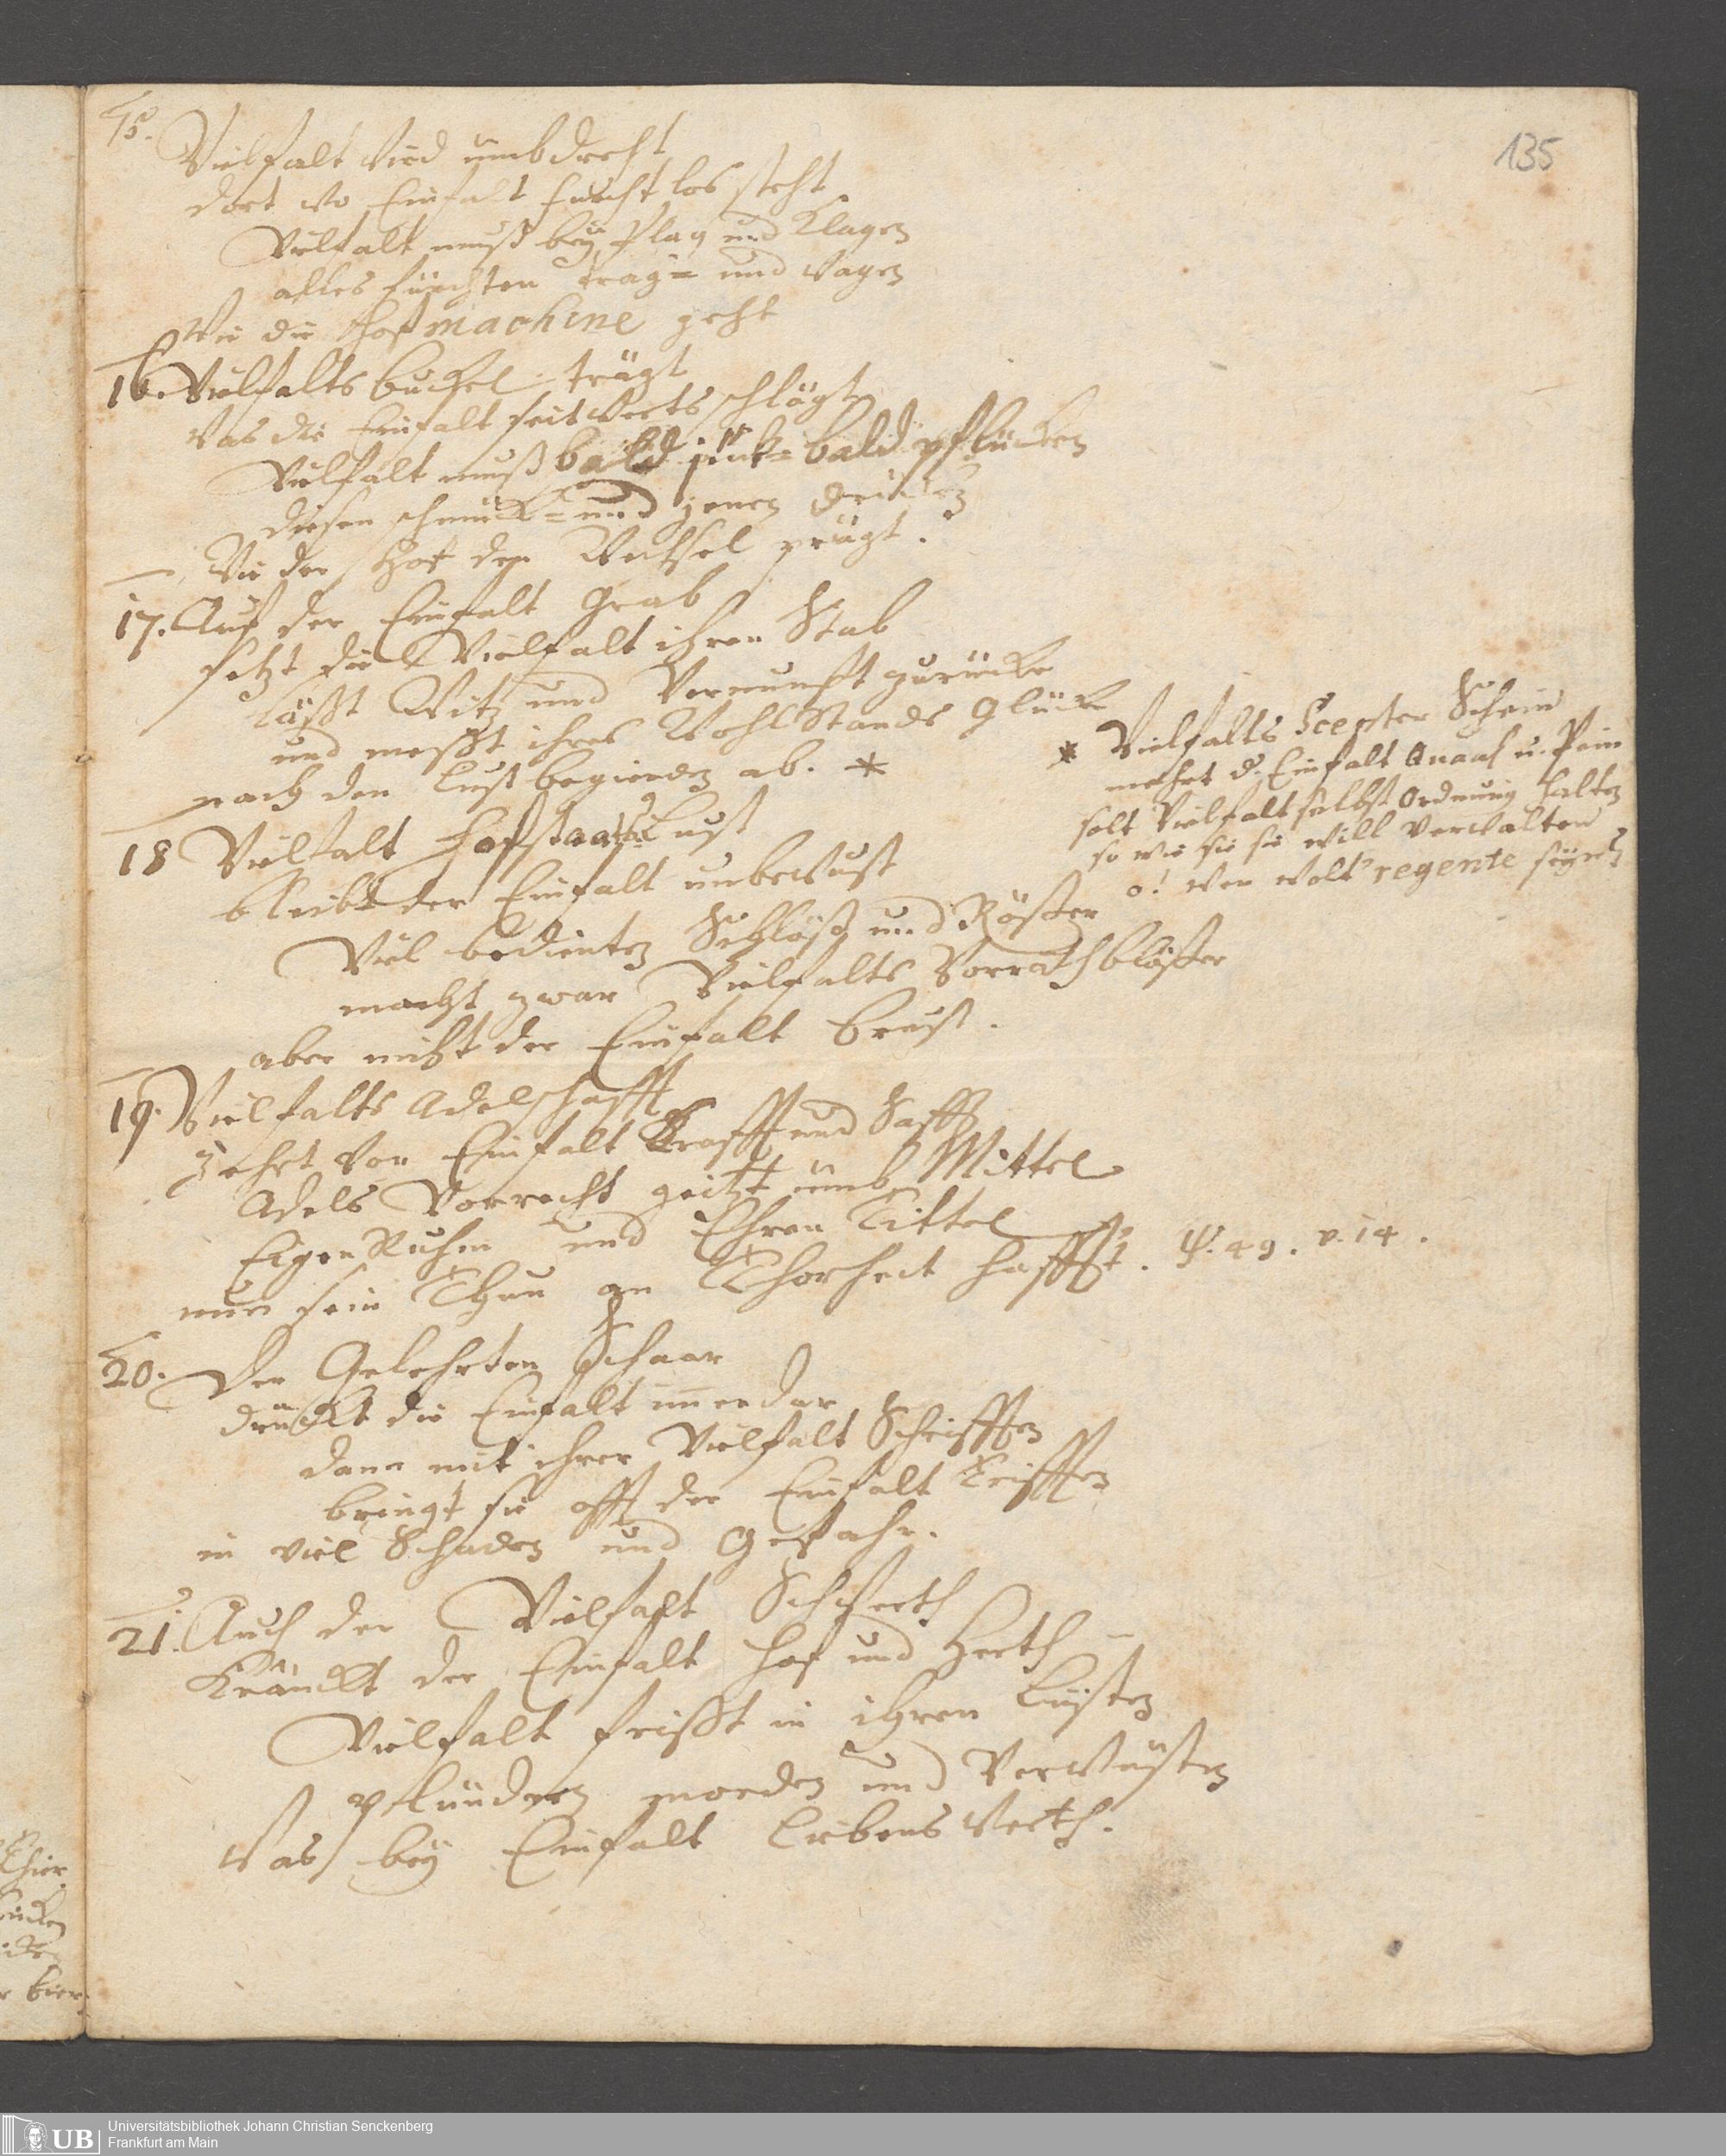 135
15.
Vielfalt wird umbdreht
dort wo Einfalt furchtlos steht
Vielfalt muß bey Plag und Klagen
alles fürchten trag= und wagen
wie die Hofmachine geht
16. Vielfalts buckel trägt
was die Einfalt seitwerts schlägt
Vielfalt muß bald bald pflücken
diesen schmück= und jenen drücken
Wie der Hof den Wechsel prägt.
17. Auf der Einfalt Grab
setzt die Vielfalt ihren Stab
läßt Witz und Vernunft zurücke
und meßt ihres Wohlstands Glücke
nach den Lustbegierden ab. *
* Vielfalts Scepter Schein
mehrt d. Einfalt Quaal u. Pein
solt Vielfalt selbst Ordnung halten
so wie sie sie will verwalten
o! wer wolt regente seyn
18 Vielfalt Hofstaats Lust
bleibt der Einfalt unbewust
Viel bedienten Schlöß und Rößer
macht zwar Vielfalts Vorrath blößer
aber nicht der Einfalt Brust.
19. Vielfalts Adelschafft
zehrt von Einfalt Krafft und Safft
Adels Vorrecht geitzt umb Mittel
Eigen Ruhm und Ehren Tittel
nur sein Thun an Thorheit hafft. ψ. 49. v. 14.
20. Der Gelehrten Schaar
drückt die Einfalt im̄erdar
dann mit ihrer Vielfalt Schrifften
bringt sie offt der Einfalt Trifften
in viel Schaden und Gefahr.
21. Auch der Vielfalt Schwerth
Kränckt der Einfalt Hof und Herth
Vielfalt frißt in ihren Lüsten
plündern morden und Verwüsten
was bey Einfalt Lebens werth.
Universitätsbibliothek Johann Christian Senckenberg
Frankfurt am Main
UB